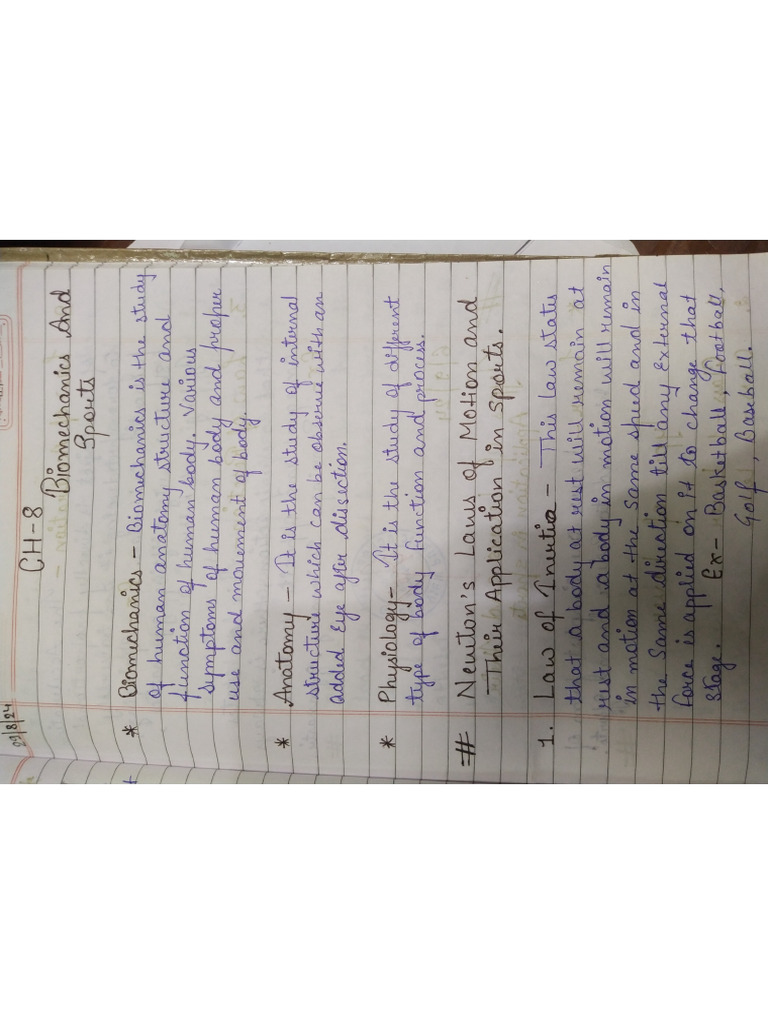 09/8/24
CH-8
Biomechanics And
Sports
* Biomechanics - Biomechanics is the study
of human anatomy structure and
function of human body. Various
symptoms of human body and proper
use and movement of body.
* Anatomy - It is the study of internal
structure which can be observe with an
added Eye after dissection.
* Physiology - It is the study of different
type of body function and process.
# Newton's Laws of Motion and
Their Application in Sports.
1. Law of Inertia - This law states
that a body at rest will remain at
rest and a body in motion will remain
in motion at the same speed and in
the same direction till any External
force is applied on it to change that
stage. Ex- Basketball, football,
Golf, Baseball.